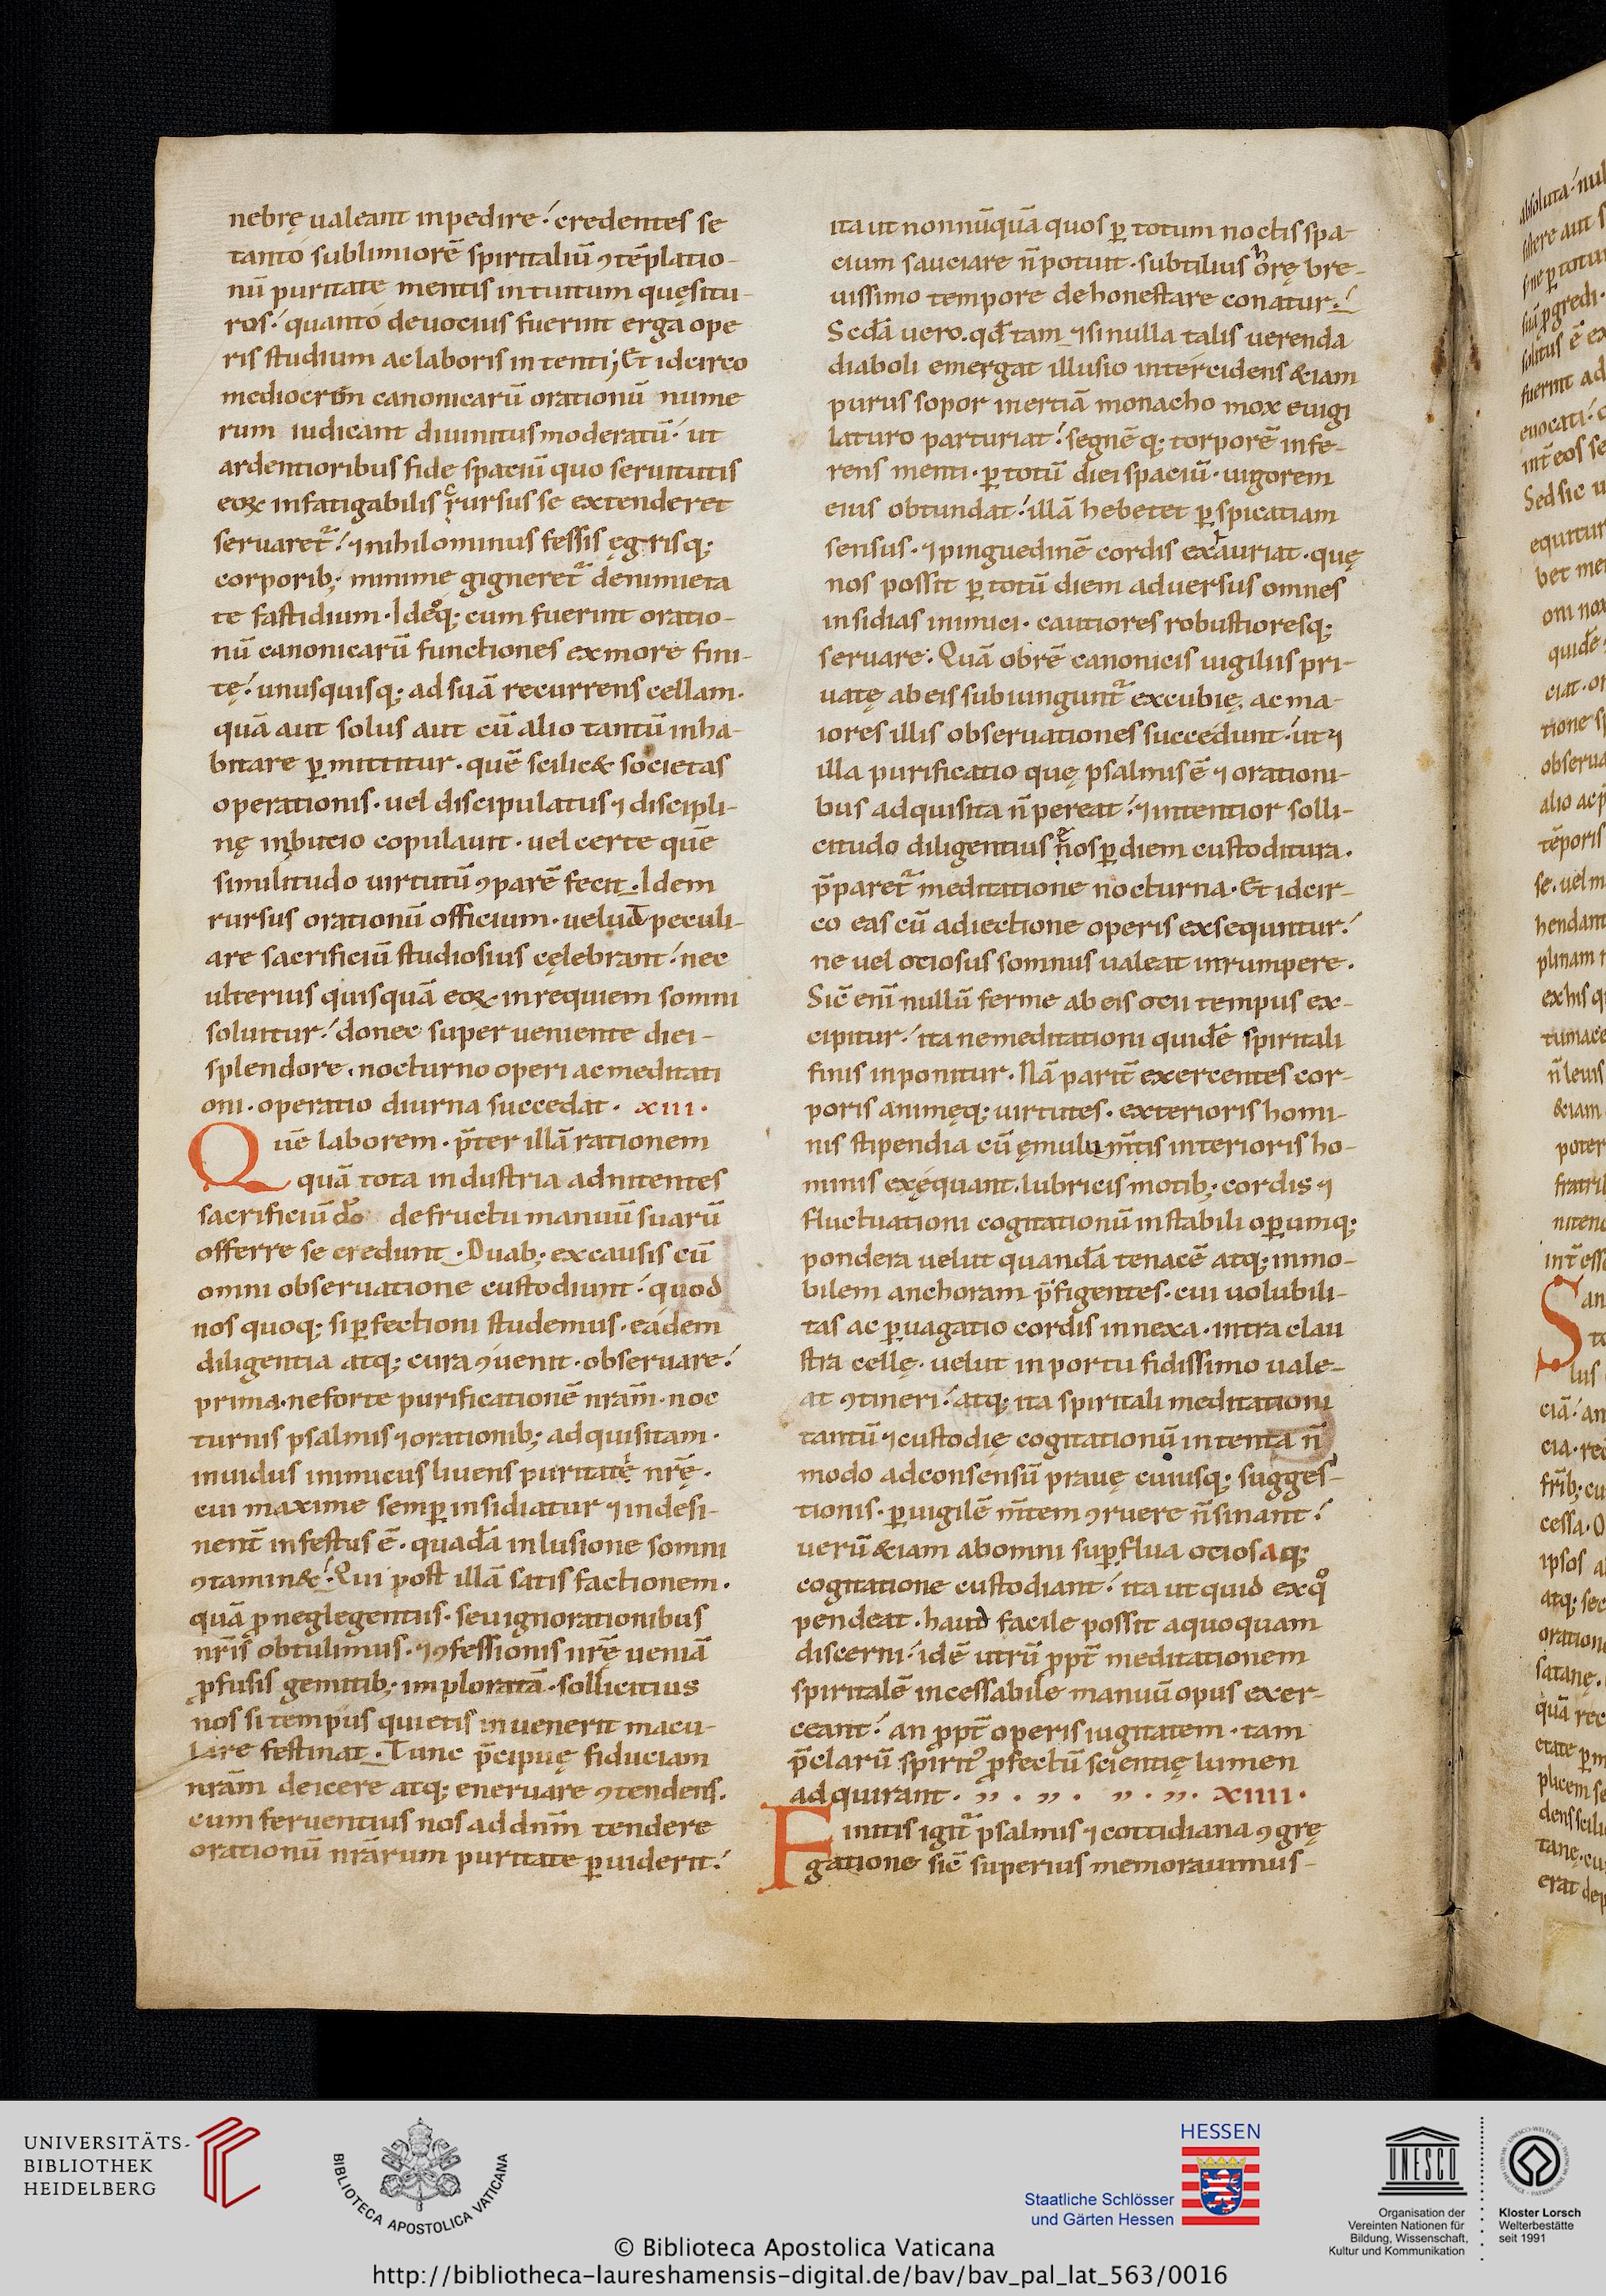 nebrę ualeant inpedire. credentes se
tanto sublimiorē spiritaliū ꝯtēplatio-
nū puritate mentis intuitum quęsitu-
ros. quanto deuocius fuerint erga ope
ris studium ac laboris intenti; Et idcirco
mediocrem canonicarū orationū nume
rum iudicant diuinitus moderatū. ut
ardentioribus fide spaciū quo seruitutis
eoꝝ infatigabilis rcursus se extenderet
seruaret᷑. ⁊ nihilominus fessis ęgrisq;
corporib; minime gigneret᷑ de nimieta
te fastidium. Ideoq; cum fuerint oratio-
nū canonicarū functiones ex more fini-
tę. unusquisq; ad suā recurrens cellam.
quā aut solus aut cū alio tantū inha-
bitare ꝑmittitur. quē scilic& societas
operationis. uel discipulatus ⁊ discipli-
nę inbutio copulauit. uel certe quē
similitudo uirtutū ꝯparē fecit. Idem
rursus orationū officium. uelud peculi-
are sacrificiū studiosius cęlebrant. nec
ulterius quisquā eoꝝ in requiem somni
soluitur. donec superueniente diei-
splendore. nocturno operi ac meditati
oni. operatio diurna succedat. xiii.
Quē laborem. p̄ter illā rationem
quā tota industria adnitentes
sacrificiū do de fructu manuū suarū
offerre se credunt. Duab; ex causis cū
omni obseruatione custodiunt. quod
nos quoq; si ꝑfectioni studemus. eadem
diligentia atq; cura ꝯuenit. obseruare.
prima. ne forte purificationē nrām. noc
turnis psalmis ⁊ orationib; adquisitam.
inuidus inimicus liuens puritatę nrę̄.
cui maxime semꝑ insidiatur ⁊ indesi-
nent̄ infestus ē. quadā inlusione somni
ꝯtamin&. Qui post illā satisfactionem.
quā ꝓ neglegentiis. seu ignorationibus
nrīs obtulimus. ⁊ ꝯfessionis nrę̄ ueniā
ꝓfusis gemitib; imploratā. sollicitius
nos si tempus quietis inuenerit macu-
lare festinat. Tunc p̄cipuę fiduciam
nrām deicere atq; eneruare ꝯtendens.
cum feruentius nos ad dnm̄ tendere
orationū nrārum puritate ꝑuiderit.
ita ut nonnūquā quos ꝑ totum noctis spa-
cium sauciare n̄ potuit. subtilius horę bre-
uissimo tempore dehonestare conatur.
Scdā uero. qd̄ tam ⁊ si nulla talis uerenda
diaboli emergat illusio intercidens &iam
purus sopor inertiā monacho mox euigi
laturo parturiat. segnē q; torporē infe-
rens menti. ꝑ totū diei spaciū. uigorem
eius obtundat. illā hebetet ꝑspicatiam
sensus. ⁊ pinguedinē cordis exhauriat. quę
nos possit ꝑ totū diem aduersus omnes
insidias inimici. cautiores robustioresq;
seruare. Quā obrē canonicis uigiliis pri-
uatę ab eis subiungunt᷑ excubię. ac ma-
iores illis obseruationes succedunt. ut ⁊
illa purificatio quę psalmis ē ⁊ orationi-
bus adquisita n̄ pereat. ⁊ intentior solli-
citudo diligentius nos ꝑ diem custoditura.
p̄paret᷑ meditatione nocturna. Et idcir-
co eas cū adiectione operis exsequntur.
ne uel ociosus somnus ualeat inrumpere.
Sic̄ enī nullū ferme ab eis ocii tempus ex-
cipitur. ita ne meditationi quidē spiritali
finis inponitur. Nā parit̄ exercentes cor-
poris animęq; uirtutes. exterioris homi-
nis stipendia cū ęmulum̄tis interioris ho-
minis exęquant. lubricis motib; cordis ⁊
fluctuationi cogitationū instabili oꝑumq;
pondera uelut quandā tenacē atq; inmo-
bilem anchoram p̄figentes. cui uolubili-
tas ac ꝑuagatio cordis innexa. intra clau
stra cellę. uelut in portu fidissimo uale-
at ꝯtineri. atq; ita spiritali meditationi
tantū ⁊ custodię cogitationū intenta n̄
modo ad consensū prauę cuiusq; sugges-
tionis. ꝑuigilē m̄tem ꝯruere n̄ sinant.
uerū &iam ab omni suꝑflua ociosaq;
cogitatione custodiant. ita ut quid ex qͦ
pendeat. haud facile possit a quoquam
discerni. idē utrū ꝓpt̄ meditationem
spiritalē incessabile manuū opus exer-
ceant. an ꝓpt̄ operis iugitatem. tam
p̄clarū spirit᷒ ꝓfectū scientię lumen
adquirant. xiiii.
Finitis igit᷑ psalmis ⁊ cottidiana ꝯgrę
gatione sic̄ superius memorauimus-
UNIVERSITÄTS-
BIBLIOTHEK
HEIDELBERG
BIBLIOTECA APOSTOLICA VATICANA
HESSEN
Staatliche Schlösser
und Gärten Hessen
UNESCO
Organisation der
Vereinten Nationen für
Bildung, Wissenschaft,
Kultur und Kommunikation
Kloster Lorsch
Welterbestätte
seit 1991
© Biblioteca Apostolica Vaticana
http://bibliotheca-laureshamensis-digital.de/bav/bav_pal_lat_563/0016